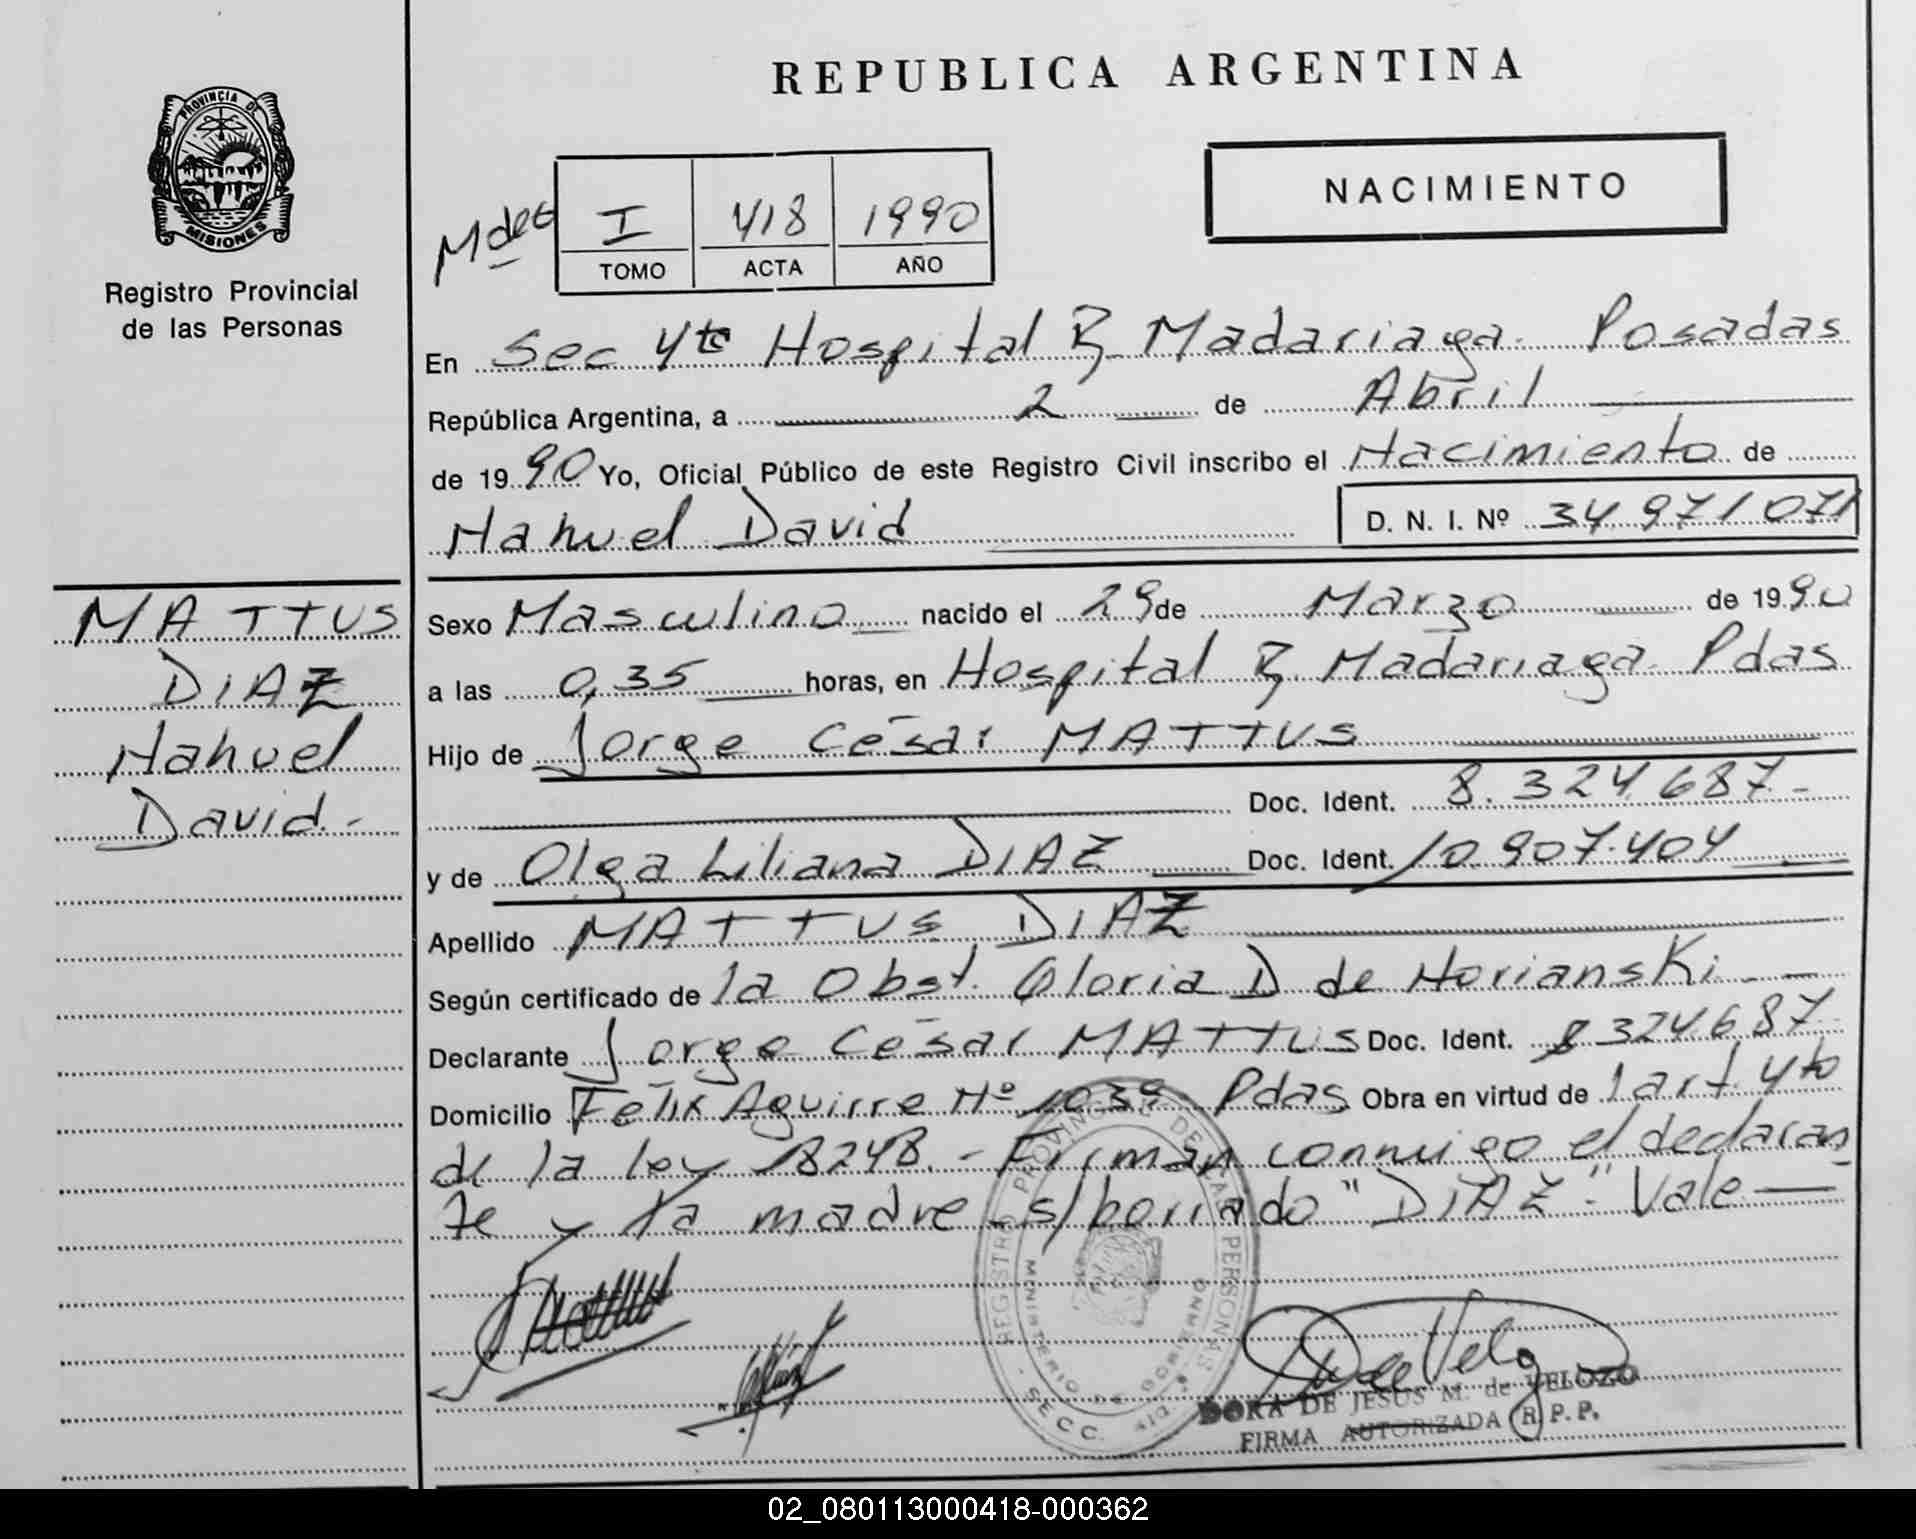 PROVINCIA DE
MISIONES
Registro Provincial
de las Personas
REPUBLICA ARGENTINA
NACIMIENTO
I 418 1990
TOMO ACTA AÑO
En Sec 4ta Hospital R. Madariaga. Posadas
República Argentina, a 2 de Abril
de 1990 Yo, Oficial Público de este Registro Civil inscribo el Nacimiento de
Nahuel David D. N. I. Nº 34 971 071
MATTUS
DIAZ
Nahuel
David.-
Sexo Masculino nacido el 29 de Marzo de 1990
a las 0,35 horas, en Hospital R. Madariaga Pdas
Hijo de Jorge César MATTUS
Doc. Ident. 8.324.687.-
y de Olga Liliana DIAZ Doc. Ident. 10.907.404
Apellido MATTUS DIAZ
Según certificado de la Obst. Gloria D de Norianski.-
Declarante Jorge César MATTUS Doc. Ident. 8324.687
Domicilio Félix Aguirre Nº 1039 Pdas Obra en virtud de l art. 4to
de la ley 18248.- Firman conmigo el declaran
te y la madre - s/borrado "DIAZ". Vale
REGISTRO PROVINCIAL DE LAS PERSONAS
MINISTERIO DE GOBIERNO
SECC.
DORA DE JESUS M. de VELOZO
FIRMA AUTORIZADA R.P.P.
02_080113000418-000362